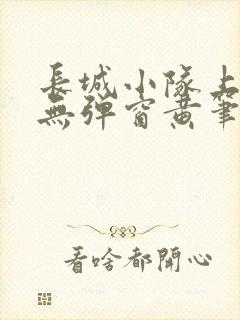 長城小隊上
無彈窗黃筆
看啥都開心